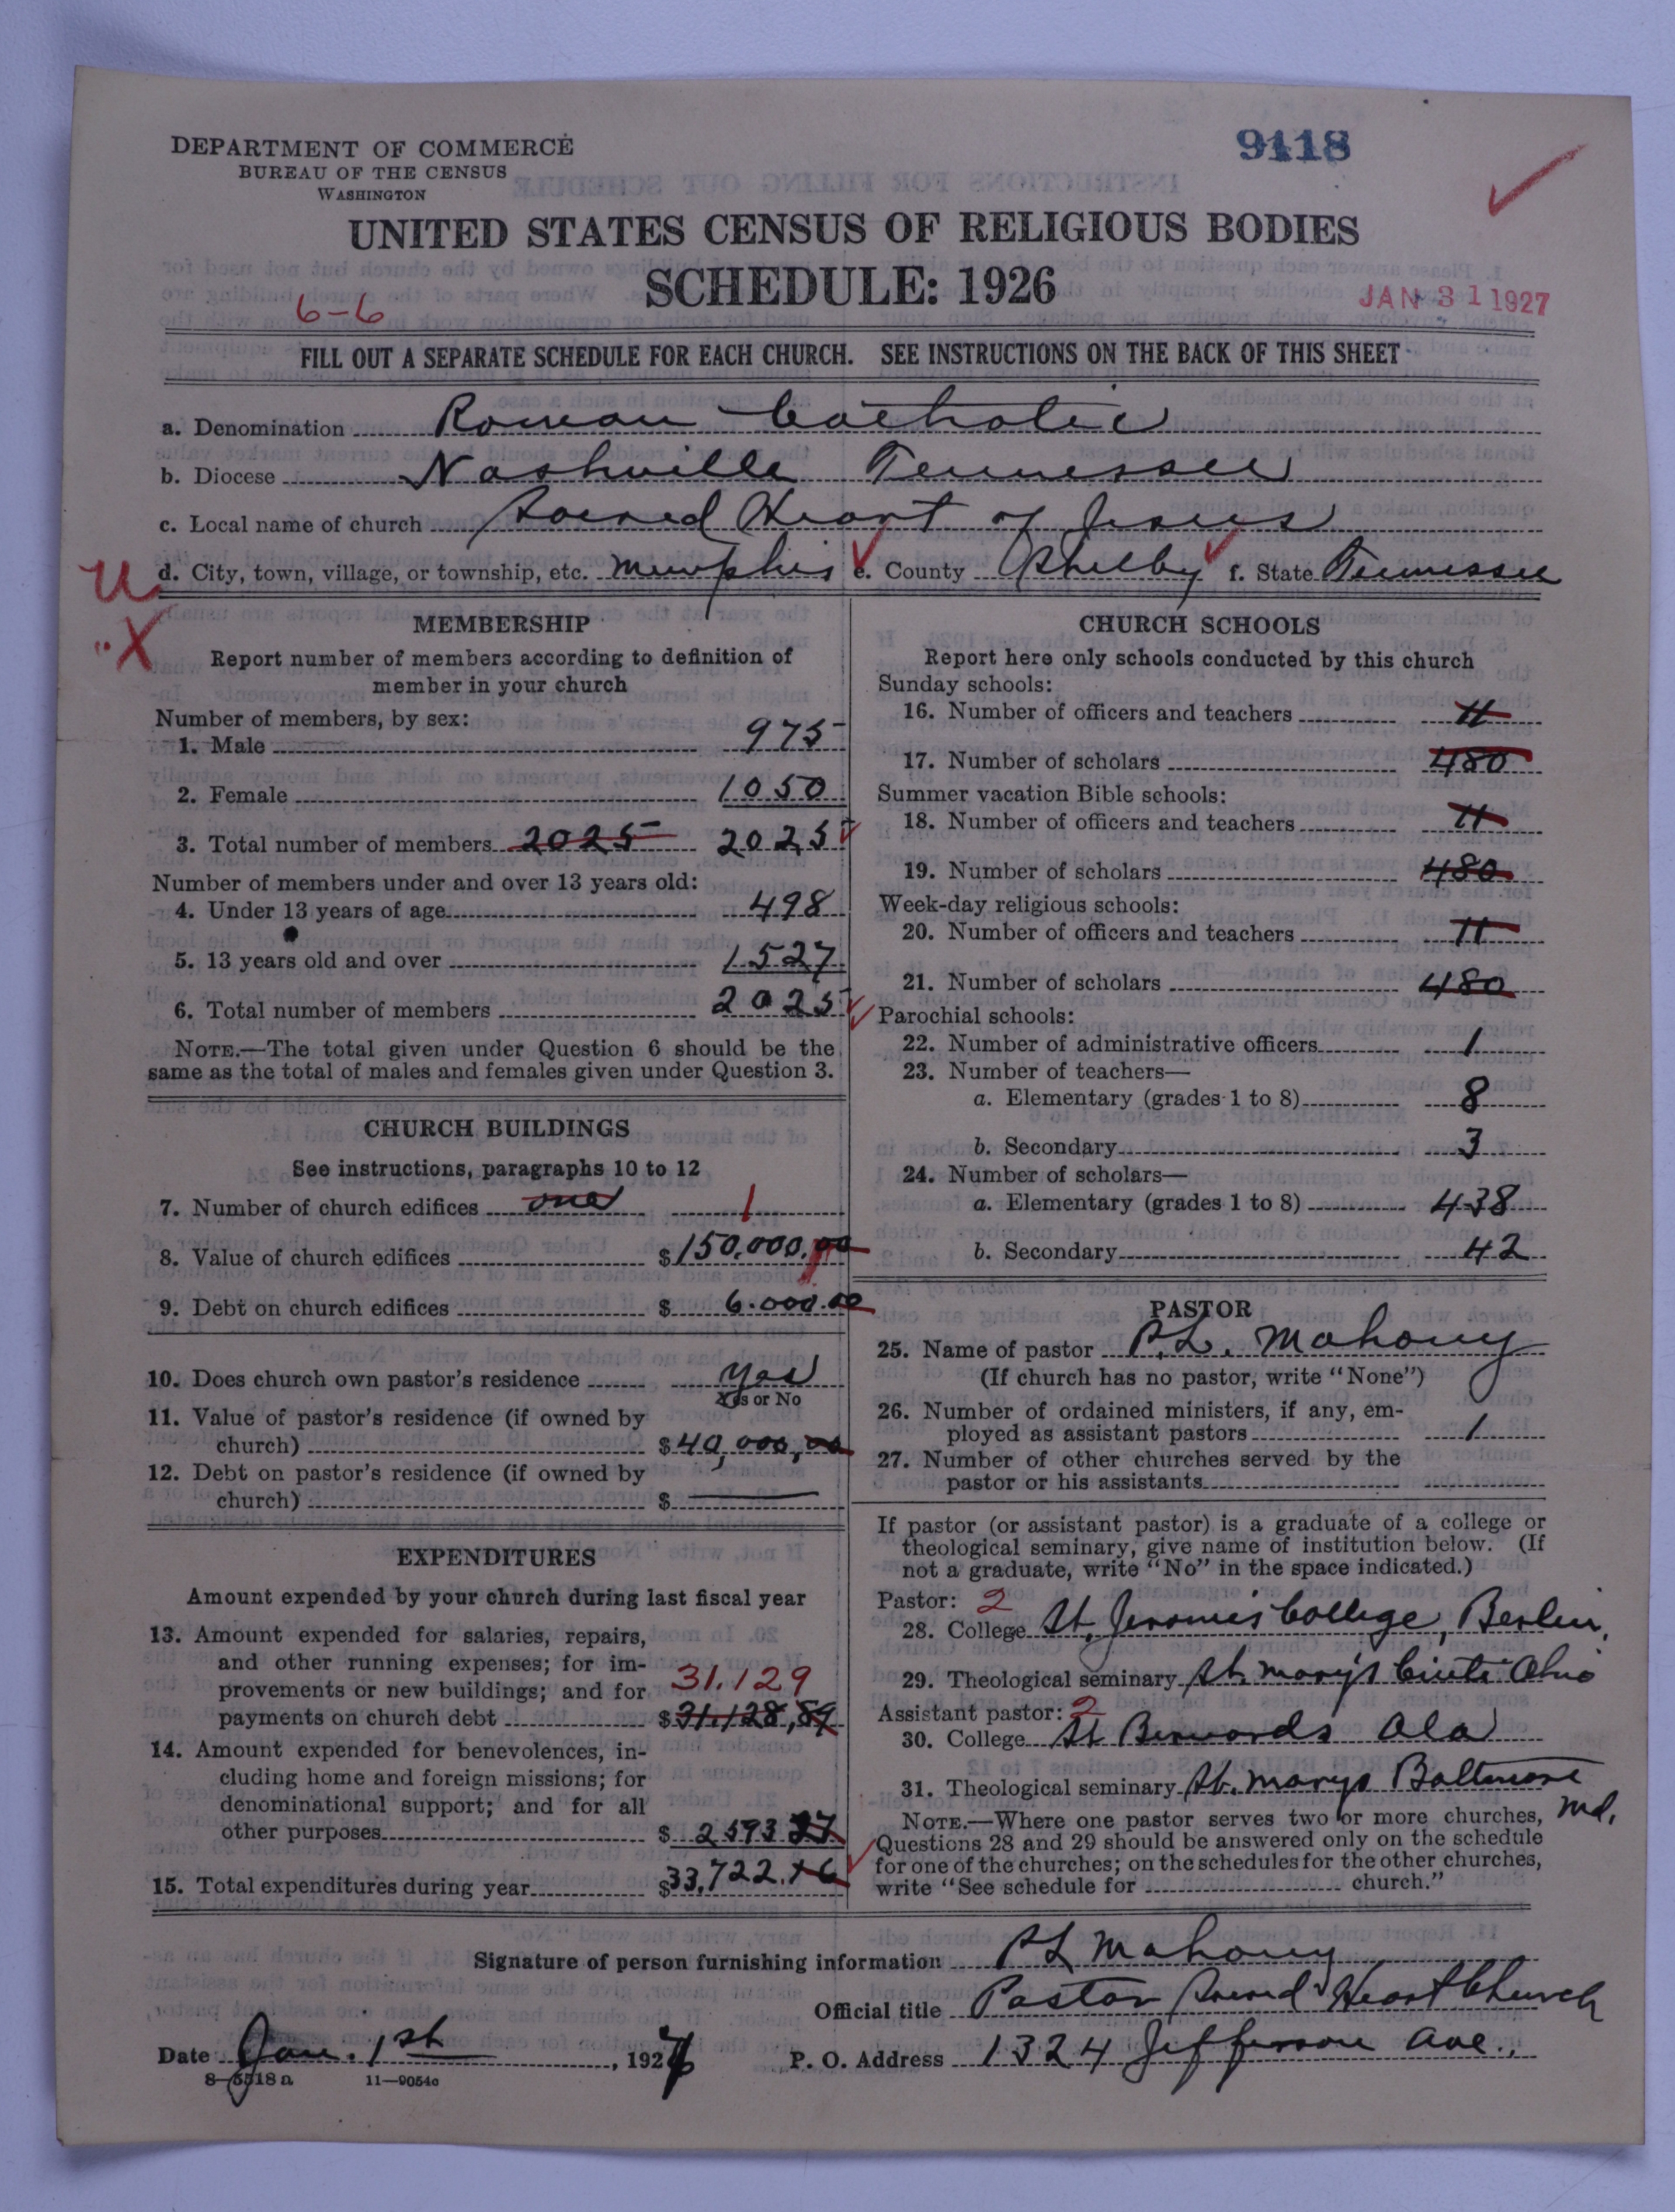 DEPARTMENT OF COMMERCE
BUREAU OF THE CENSUS
WASHINGTON
9118
UNITED STATES CENSUS OF RELIGIOUS BODIES
SCHEDULE: 1926
6-6
JAN 31 1927
FILL OUT A SEPARATE SCHEDULE FOR EACH CHURCH. SEE INSTRUCTIONS ON THE BACK OF THIS SHEET
a. Denomination Roman Catholic
b. Diocese Nashville Tennessee
c. Local name of church Sacred Heart of Jesus
U d. City, town, village, or township, etc. Memphis e. County Shelby f. State Tennessee
X
MEMBERSHIP
Report number of members according to definition of
member in your church
Number of members, by sex:
1. Male 975
2. Female 1050
3. Total number of members 2025 2025
Number of members under and over 13 years old:
4. Under 13 years of age 498
5. 13 years old and over 1527
6. Total number of members 2025
NOTE.—The total given under Question 6 should be the
same as the total of males and females given under Question 3.
CHURCH BUILDINGS
See instructions, paragraphs 10 to 12
7. Number of church edifices one 1
8. Value of church edifices $150,000.00
9. Debt on church edifices $ 6.000.00
10. Does church own pastor's residence yes
Yes or No
11. Value of pastor's residence (if owned by
church) $40,000,00
12. Debt on pastor's residence (if owned by
church) $ —
EXPENDITURES
Amount expended by your church during last fiscal year
13. Amount expended for salaries, repairs,
and other running expenses; for im-
provements or new buildings; and for 31.129
payments on church debt $31.128,89
14. Amount expended for benevolences, in-
cluding home and foreign missions; for
denominational support; and for all
other purposes $ 2593 27
15. Total expenditures during year $33,722.16
CHURCH SCHOOLS
Report here only schools conducted by this church
Sunday schools:
16. Number of officers and teachers 11
17. Number of scholars 480
Summer vacation Bible schools:
18. Number of officers and teachers 11
19. Number of scholars 480
Week-day religious schools:
20. Number of officers and teachers 11
21. Number of scholars 480
Parochial schools:
22. Number of administrative officers 1
23. Number of teachers—
a. Elementary (grades 1 to 8) 8
b. Secondary 3
24. Number of scholars—
a. Elementary (grades 1 to 8) 438
b. Secondary 42
PASTOR
25. Name of pastor P.L. Mahony
(If church has no pastor, write "None")
26. Number of ordained ministers, if any, em-
ployed as assistant pastors 1
27. Number of other churches served by the
pastor or his assistants
If pastor (or assistant pastor) is a graduate of a college or
theological seminary, give name of institution below. (If
not a graduate, write "No" in the space indicated.)
Pastor: 2
28. College St. Jerome's College, Berlin,
29. Theological seminary St. Mary's Cinti Ohio
Assistant pastor: 2
30. College St Bernards Ala
31. Theological seminary St. Marys Baltimore
Md.
NOTE.—Where one pastor serves two or more churches,
Questions 28 and 29 should be answered only on the schedule
for one of the churches; on the schedules for the other churches,
write "See schedule for church."
Signature of person furnishing information P L Mahony
Official title Pastor Sacred Heart Church
Date Jan. 1st, 1927 P. O. Address 1324 Jefferson Ave.,
8-5518a 11—9054c